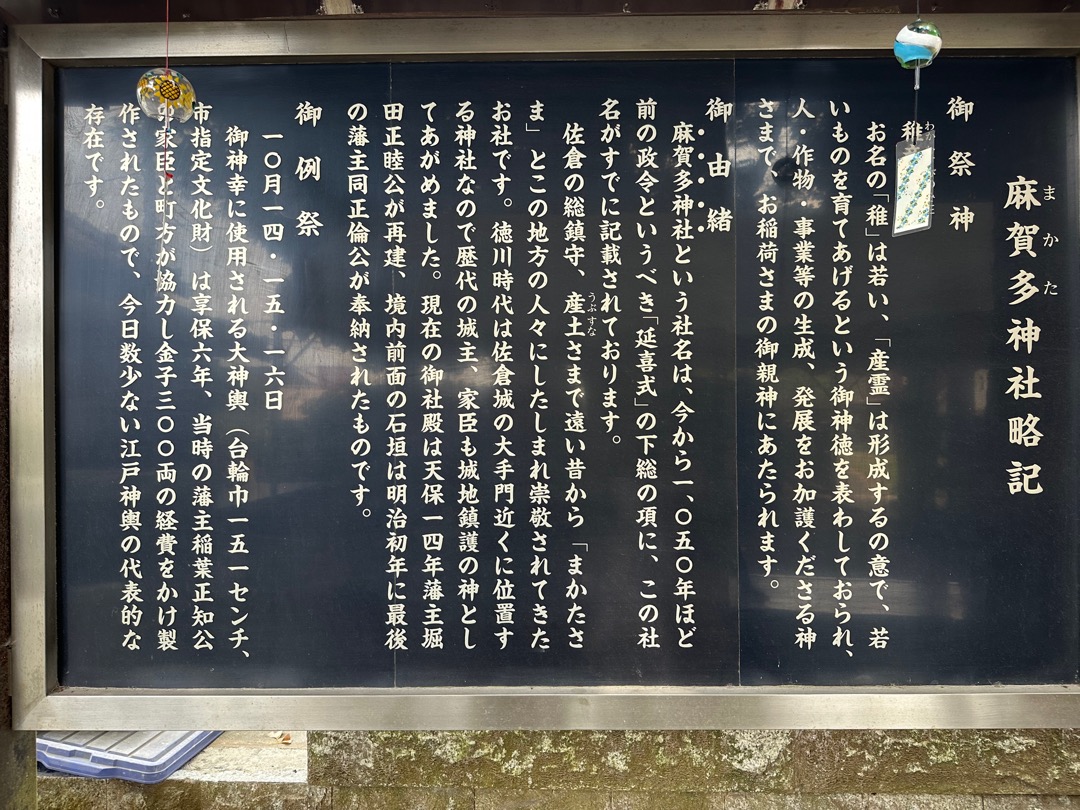 麻賀多神社略記
まかた
御祭神
稚
わ
お名の「稚」は若い、「産霊」は形成するの意で、若
いものを育てあげるという御神徳を表わしておられ、
人・作物・事業等の生成、発展をお加護くださる神
さまで、お稲荷さまの御親神にあたられます。
御由緒
麻賀多神社という社名は、今から一、〇五〇年ほど
前の政令というべき「延喜式」の下総の項に、この社
名がすでに記載されております。
佐倉の総鎮守、産土さまで遠い昔から「まかたさ
うぶすな
ま」とこの地方の人々にしたしまれ崇敬されてきた
お社です。徳川時代は佐倉城の大手門近くに位置す
る神社なので歴代の城主、家臣も城地鎮護の神とし
てあがめました。現在の御社殿は天保一四年藩主堀
田正睦公が再建、境内前面の石垣は明治初年に最後
の藩主同正倫公が奉納されたものです。
御例祭
一〇月一四・一五・一六日
御神幸に使用される大神輿(台輪巾一五一センチ、
市指定文化財)は享保六年、当時の藩主稲葉正知公
家臣と町方が協力し金子三〇〇両の経費をかけ製
作されたもので、今日数少ない江戸神輿の代表的な
存在です。